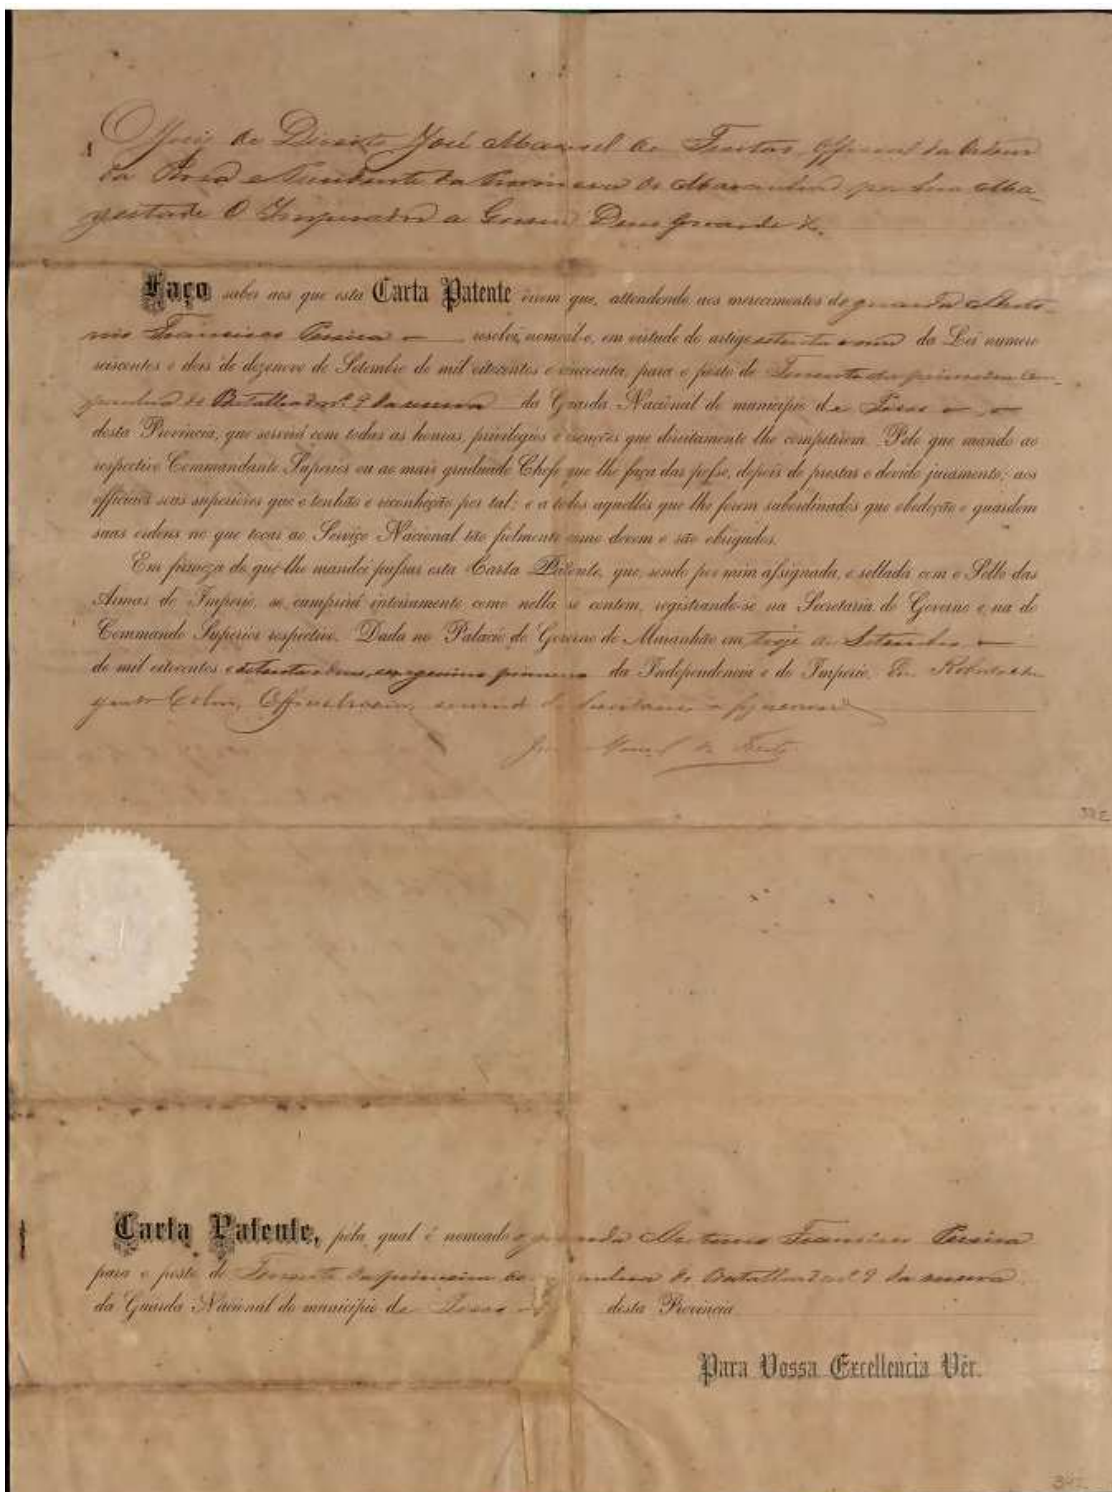 O Juiz de Direito José Manoel de Freitas, Official da Ordem
da Rosa e Presidente da Provincia do Maranhão por Sua Ma-
gestade O Imperador a Quem Deus Guarde &.
Faço saber aos que esta Carta Patente virem que, attendendo aos merecimentos do guarda
Francisco Pereira resolvi nomeal-o, em virtude do artigo setenta e um da Lei numero
seiscentos e dois de dezenove de Setembro de mil oitocentos e cincoenta, para o posto de Tenente da primeira com-
panhia do Batalhão nº 9 da reserva da Guarda Nacional do municipio de
desta Provincia, que servirá com todas as honras, privilegios e isenções que direitamente lhe competirem. Pelo que mando ao
respectivo Commandante Superior ou ao mais graduado Chefe que lhe faça dar posse, depois de prestar o devido juramento; aos
officiaes seus superiores que o tenhão e reconheção por tal; e a todos aquelles que lhe forem subordinados que obedeção e guardem
suas ordens no que tocar ao Serviço Nacional tão fielmente como devem e são obrigados.
Em firmeza do que lhe mandei passar esta Carta Patente, que, sendo por mim assignada, e sellada com o Sello das
Armas do Imperio, se cumprirá inteiramente como nella se contem, registrando-se na Secretaria do Governo e na do
Commando Superior respectivo. Dada no Palacio do Governo do Maranhão em treze de Setembro
de mil oitocentos e setenta e dous, quinquagesimo primeiro da Independencia e do Imperio. Eu
servindo de Secretario a fiz escrever
José Manoel de Freitas
Carta Patente, pela qual é nomeado o guarda Francisco Pereira
para o posto de Tenente da primeira companhia do Batalhão nº 9 da reserva
da Guarda Nacional do municipio de desta Provincia
Para Vossa Excellencia Vêr.